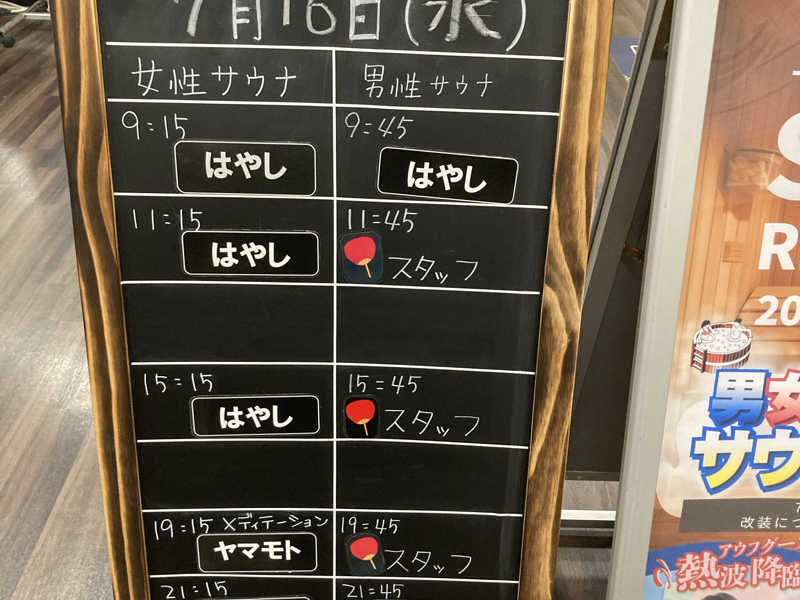 7月16日(水)
女性サウナ 男性サウナ
9:15 9:45
はやし はやし
11:15 11:45
はやし スタッフ
15:15 15:45
はやし スタッフ
19:15 メディテーション 19:45
ヤマモト スタッフ
21:15 21:45
S
R
20
男女
サウ
7
改装につ
アウフグー
熱波降臨